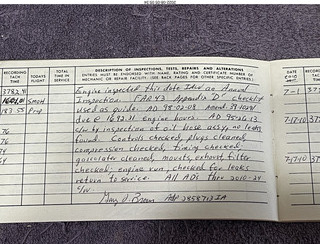 RECORDING TACH TIME
TODAYS FLIGHT
TOTAL TIME IN SERVICE
DESCRIPTION OF INSPECTIONS, TESTS, REPAIRS AND ALTERATIONS
ENTRIES MUST BE ENDORSED WITH NAME, RATING AND CERTIFICATE NUMBER OF
MECHANIC OR REPAIR FACILITY. (SEE BACK PAGES FOR OTHER SPECIFIC ENTRIES)
3782.41 Engine inspected this date IAW an Annual
SMOH Inspection. FAR 43 Appendix "D" checklist
used as guide. AD 98-02-08
due @ 1692.11 engine hours. AD
c/w by inspection of oil hose assy no leaks
76 found. Controls checked, plugs cleaned,
76 compression checked, timing checked
74 gascolator cleaned, mounts, exhaust, filter
checked, engine run, checked for leaks
return to service. All ADs thru 2010-24
c/w.
A&P 2858713 IA
DATE
RECORDING TACH TIME
7-1
7-17-10
7-17-10